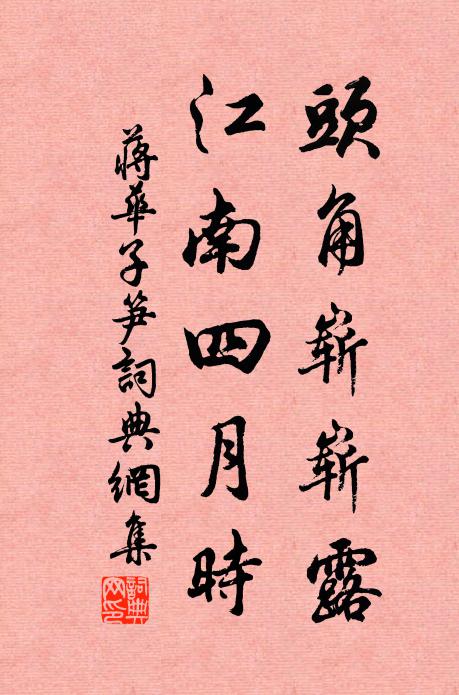 頭角嶄嶄露
江南四月時
蔣華子笋詞典網集
詞典網印